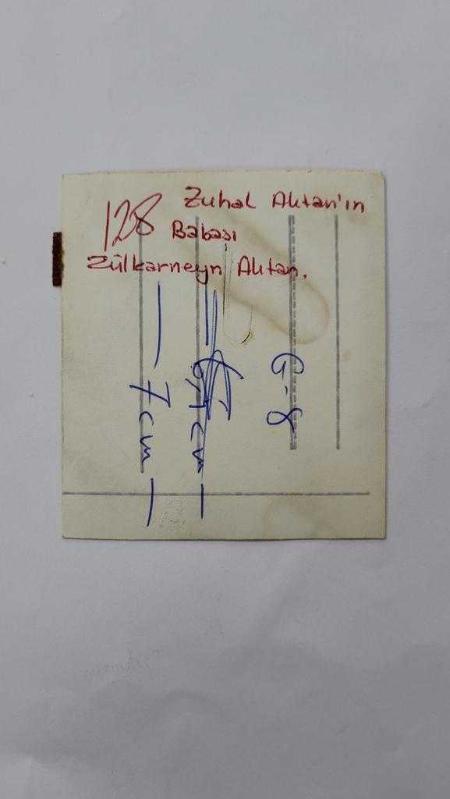 128
Zuhal Aktan'ın
Babası
Zülkarneyn Aktan.
G-8
7cm